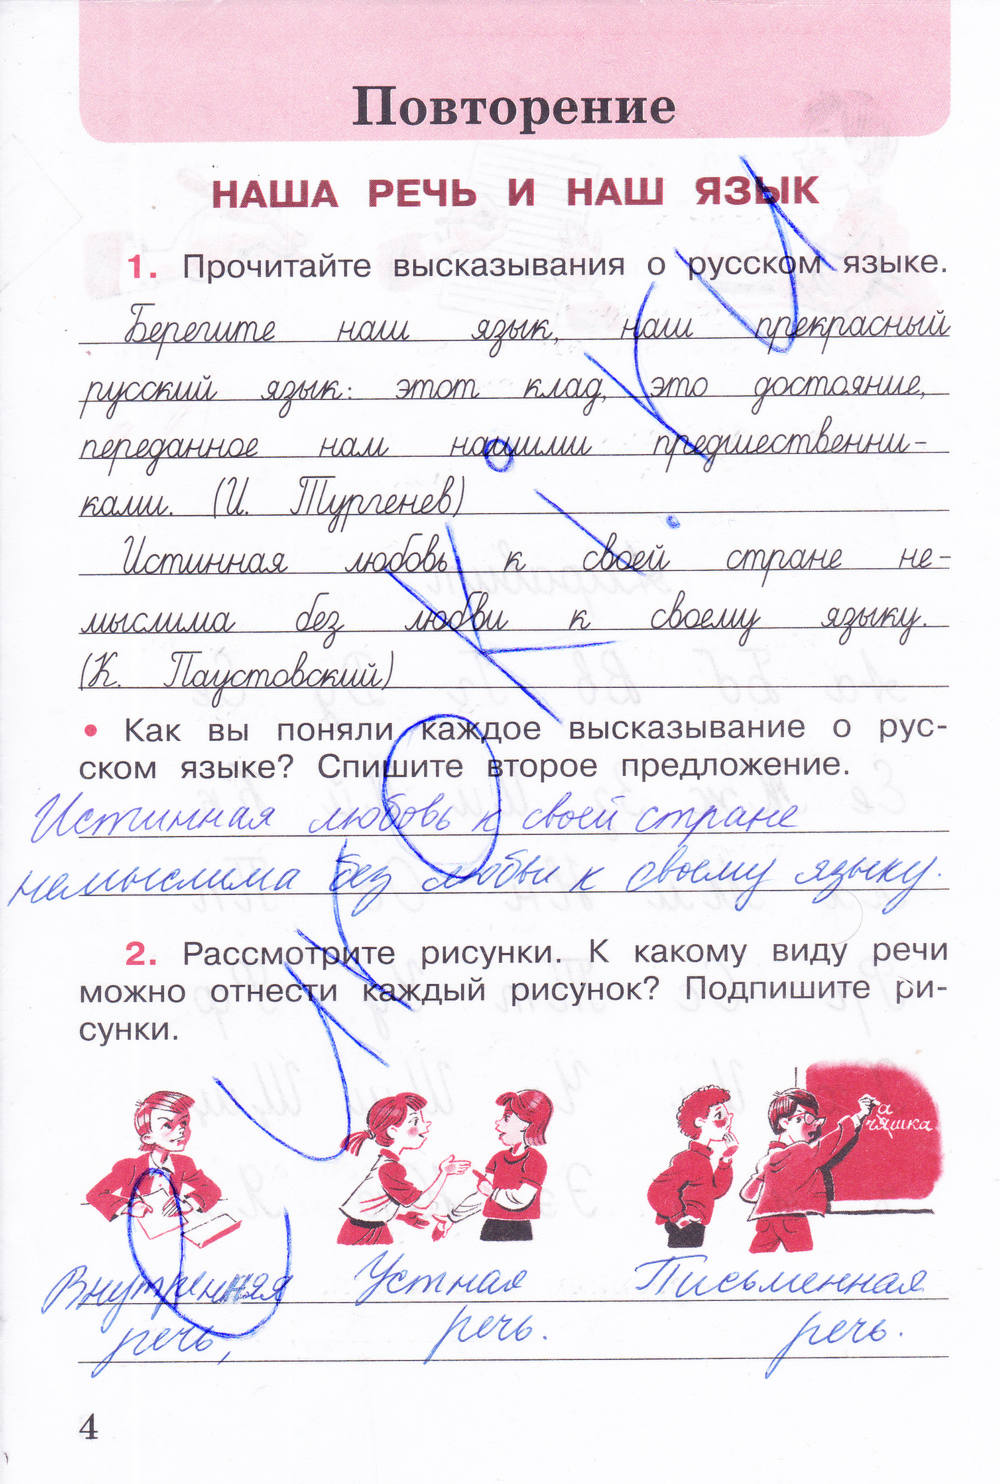 Повторение
НАША РЕЧЬ И НАШ ЯЗЫК
1. Прочитайте высказывания о русском языке.
Берегите наш язык, наш прекрасный
русский язык: этот клад, это достояние,
переданное нам нашими предшественни-
ками. (И. Тургенев)
Истинная любовь к своей стране не-
мыслима без любви к своему языку.
(К. Паустовский)
• Как вы поняли каждое высказывание о рус-
ском языке? Спишите второе предложение.
Истинная любовь к своей стране
немыслима без любви к своему языку.
2. Рассмотрите рисунки. К какому виду речи
можно отнести каждый рисунок? Подпишите ри-
сунки.
а
чяшка
Внутренняя Устная Письменная
речь, речь. речь.
4